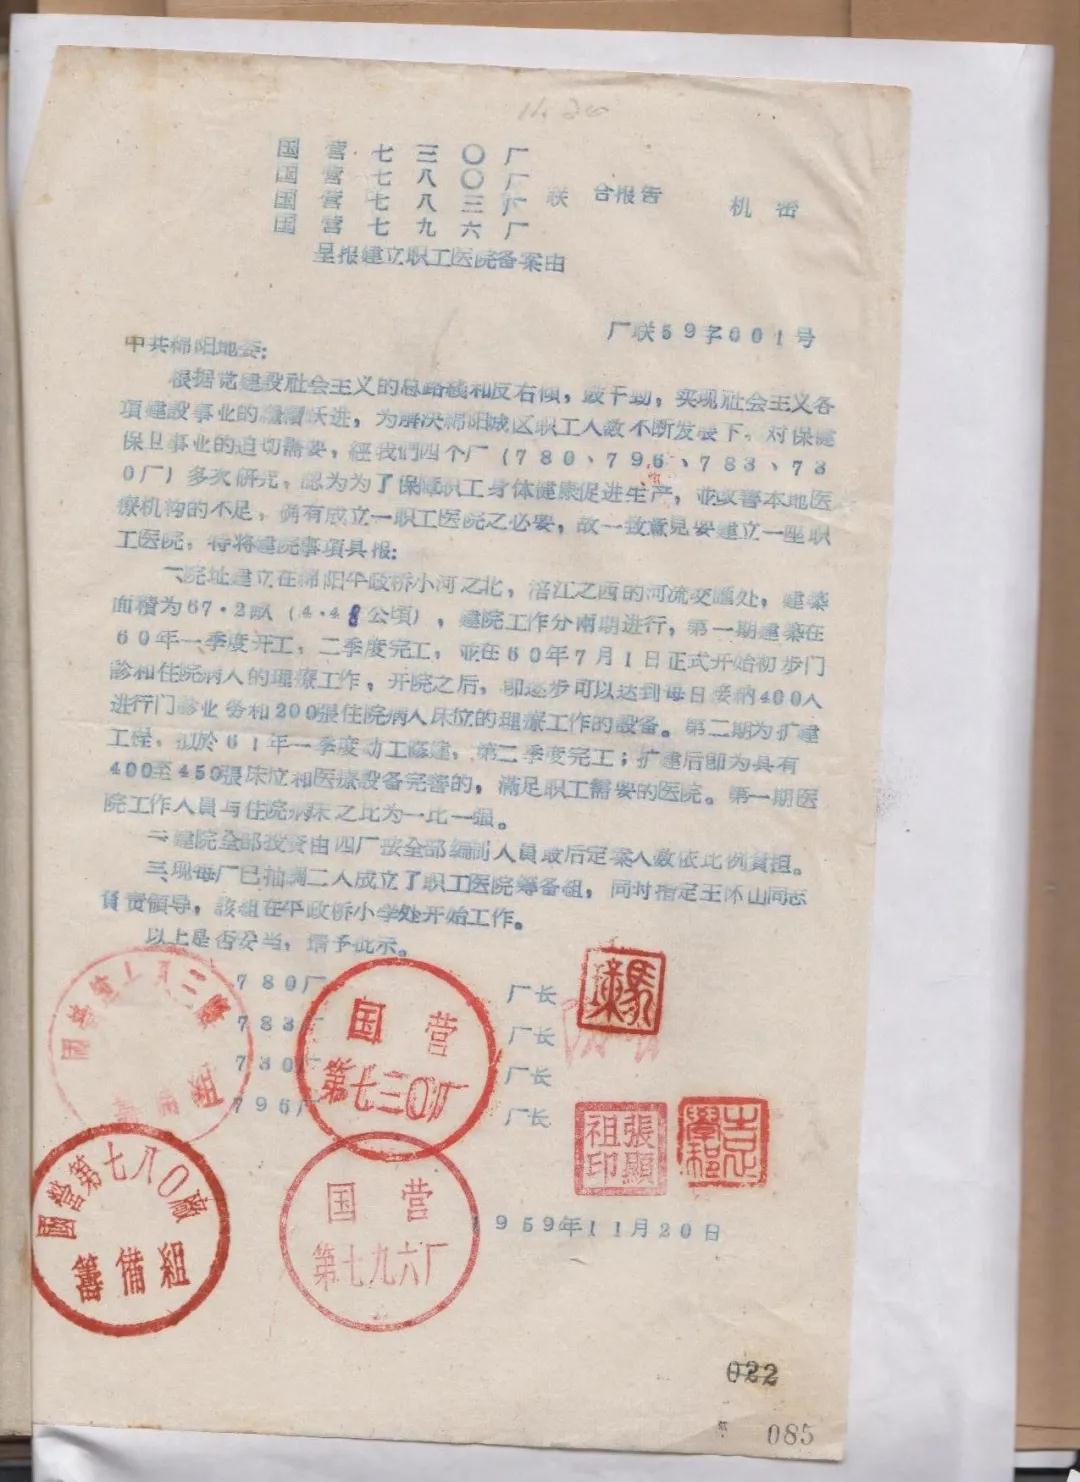 国营七三〇厂
国营七八〇厂
国营七八三厂
国营七九六厂
联合报告 机密
呈报建立职工医院备案由
厂联59字001号
中共綿阳地委:
根据党建設社会主义的总路綫和反右傾,鼓干劲,实现社会主义各
項建設事业的繼續跃进,为解决綿阳城区职工人数不断发展下,对保健
保卫事业的迫切需要,經我們四个厂(780、796、783、73
0厂)多次研究,認为为了保障职工身体健康促进生产,並改善本地医
療机构的不足,确有成立一职工医院之必要,故一致意見要建立一座职
工医院,特将建院事項具报:
一、院址建立在綿阳平政桥小河之北,涪江之西的河流交匯处,建築
面積为67·2畝(4·48公頃),建院工作分兩期进行,第一期建築在
60年一季度开工,二季度完工,並在60年7月1日正式开始初步门
診和住院病人的理療工作,开院之后,即逐步可以达到每日接納400人
进行门診业务和200張住院病人床位的理療工作的設备。第二期为扩建
工程,拟於61年一季度动工修建,第二季度完工;扩建后即为具有
400至450張床位和医療設备完善的,滿足职工需要的医院。第一期医
院工作人員与住院病床之比为一比一强。
二、建院全部投資由四厂按全部編制人員最后定案人数依比例負担。
三、现每厂已抽調二人成立了职工医院籌备組,同时指定王怀山同志
負責領导,該組在平政桥小学处开始工作。
以上是否妥当,請予批示。
780厂 厂长
783厂 厂长
730厂 厂长
796厂 厂长
国营
第七三〇厂
國營第七八〇廠
籌備組
国营
第七九六厂
張顯
祖印
959年11月20日
022
085